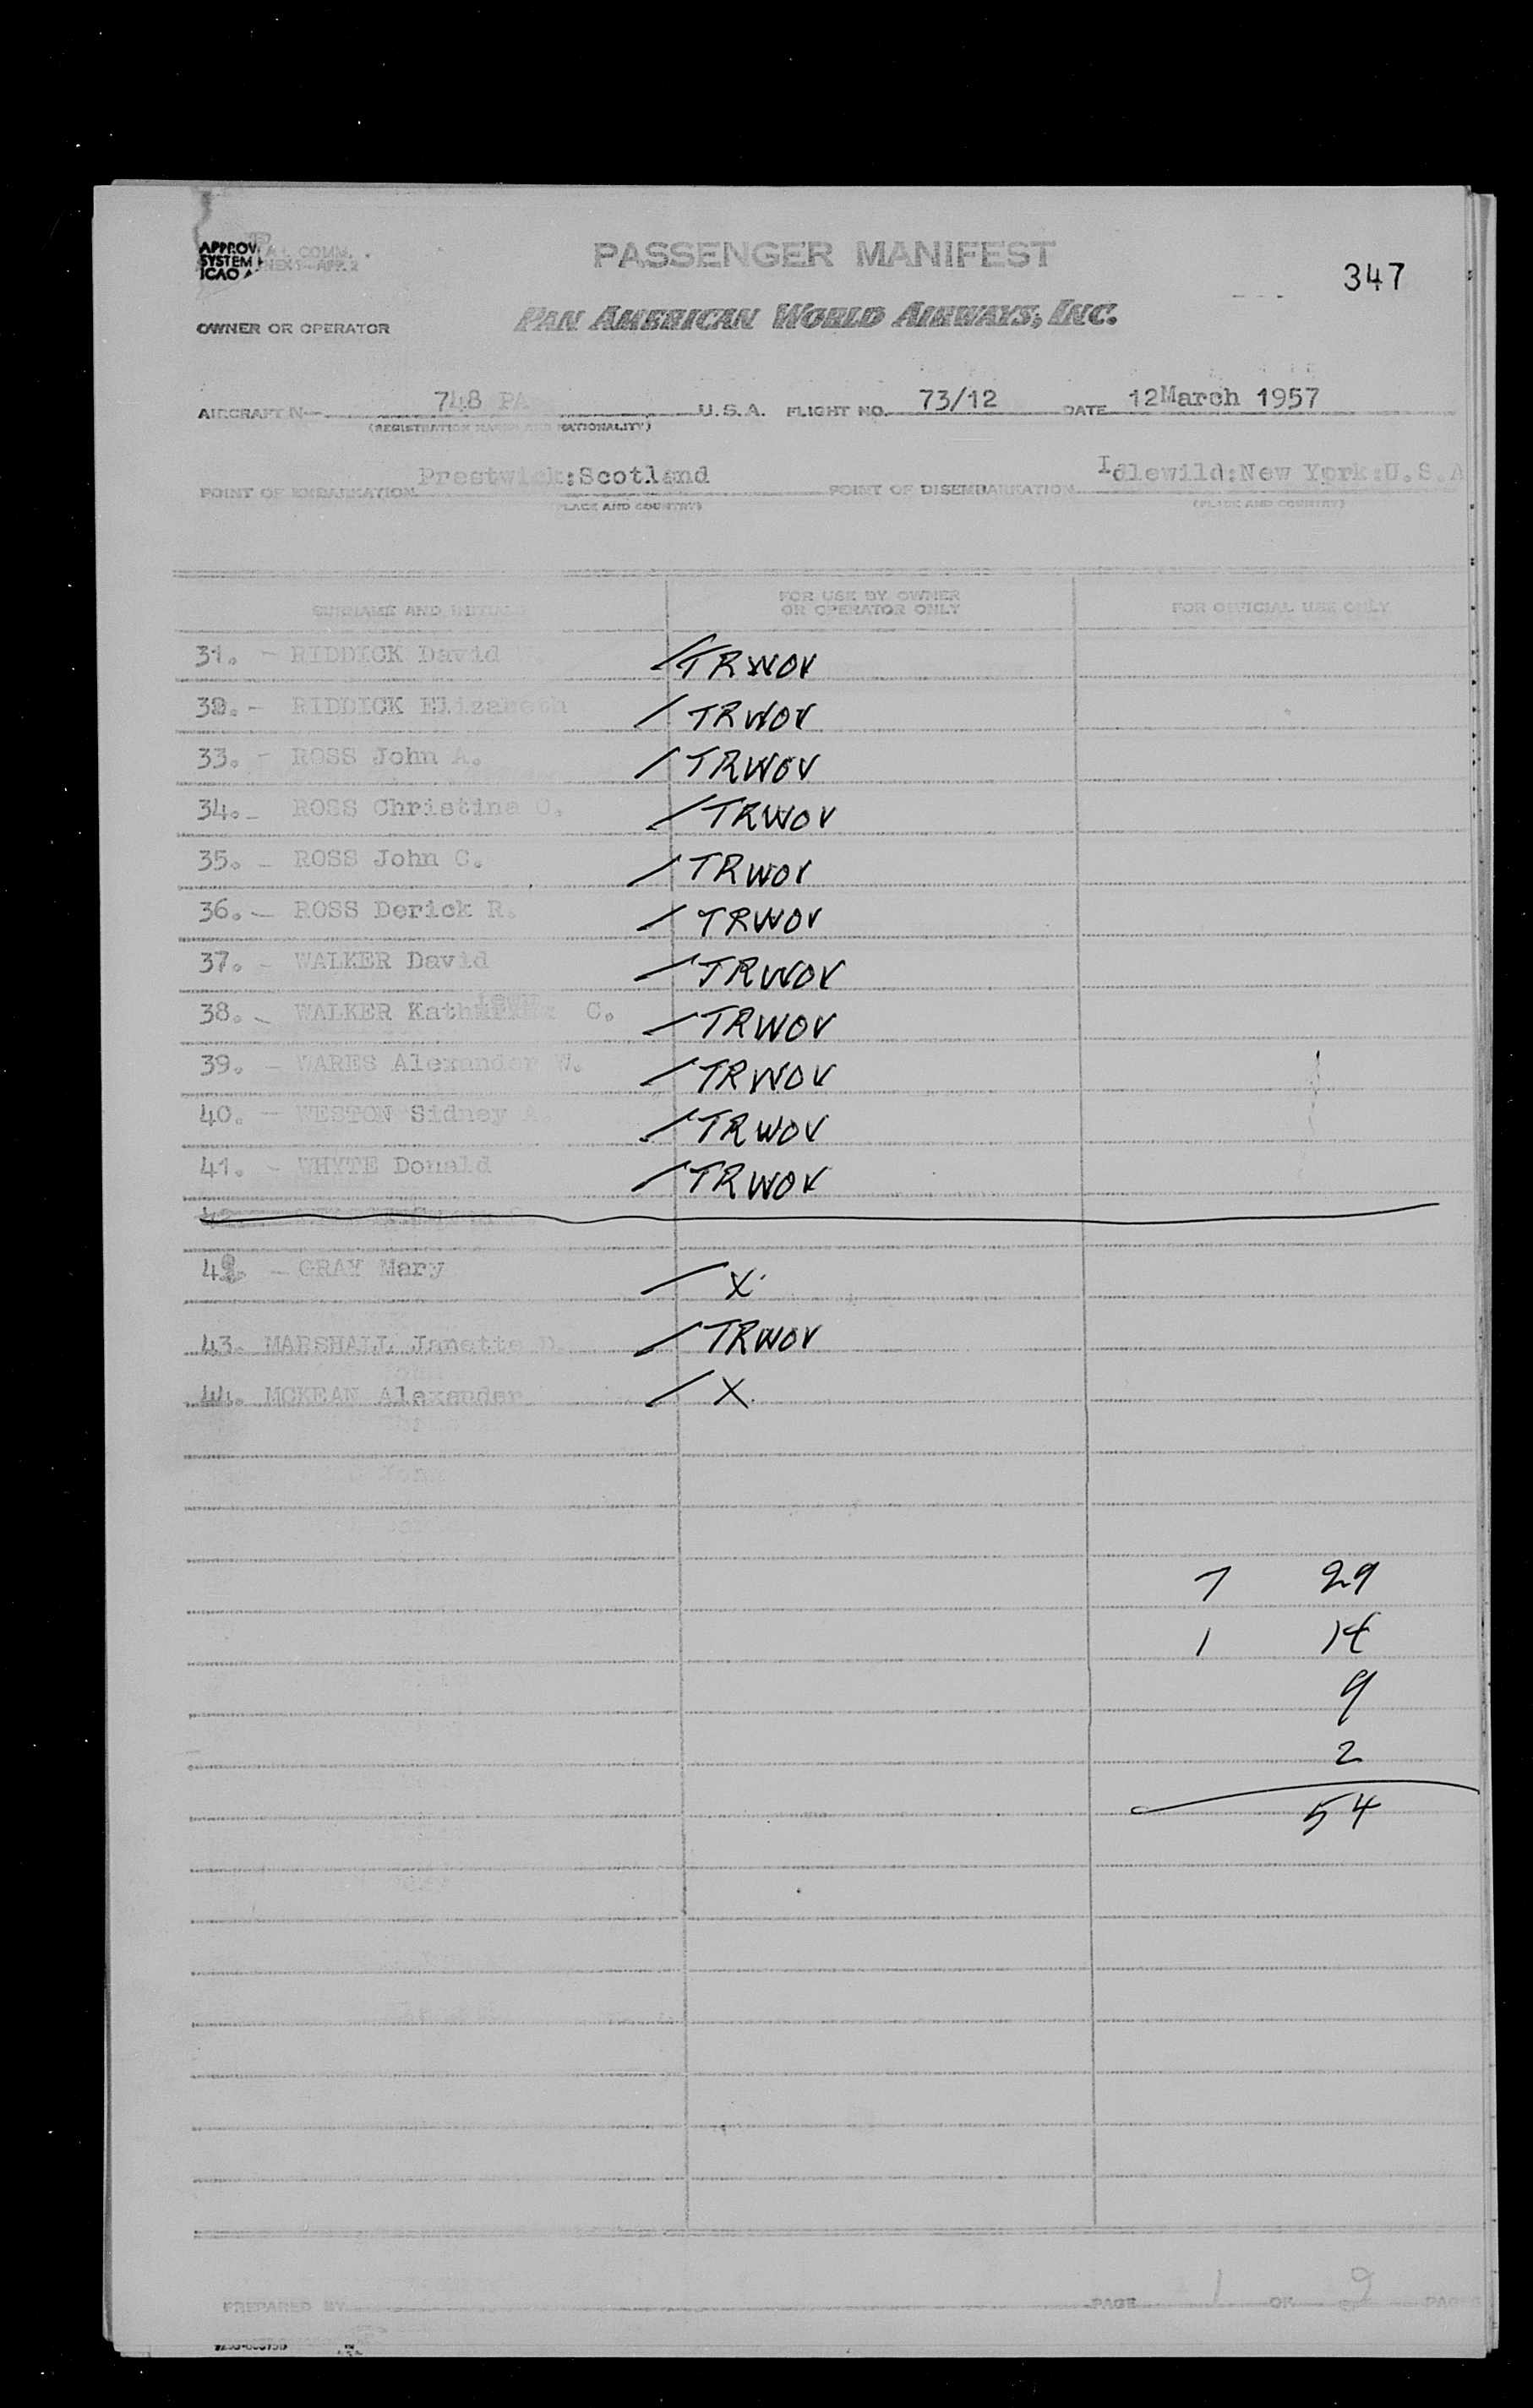 PASSENGER MANIFEST
347
APPROV
SYSTEM
ICAO
OWNER OR OPERATOR
PAN AMERICAN WORLD AIRWAYS, INC.
AIRCRAFT N— 748 PA U.S.A. FLIGHT NO. 73/12 DATE 12March 1957
(REGISTRATION MARKS AND NATIONALITY)
POINT OF EMBARKATION Prestwick:Scotland POINT OF DISEMBARKATION Idlewild:New York:U.S.A
(PLACE AND COUNTRY) (PLACE AND COUNTRY)
SURNAME AND INITIALS FOR USE BY OWNER OR OPERATOR ONLY FOR OFFICIAL USE ONLY
31. - RIDDICK David / TRWOV
32. - RIDDICK Elizabeth / TRWOV
33. - ROSS John A. / TRWOV
34. - ROSS Christina C. / TRWOV
35. - ROSS John C. / TRWOV
36. - ROSS Derick R. / TRWOV
37. - WALKER David / TRWOV
38. - WALKER C. / TRWOV
39. - WARES Alexander W. / TRWOV
40. - WESTON Sidney A. / TRWOV
41. - WHYTE Donald / TRWOV
42. - GRAY Mary / X
43. MARSHALL Janette D. / TRWOV
44. MCKEAN Alexander / X
7 29
1 14
9
2
54
PREPARED BY PAGE 1 OF 2 PAGES